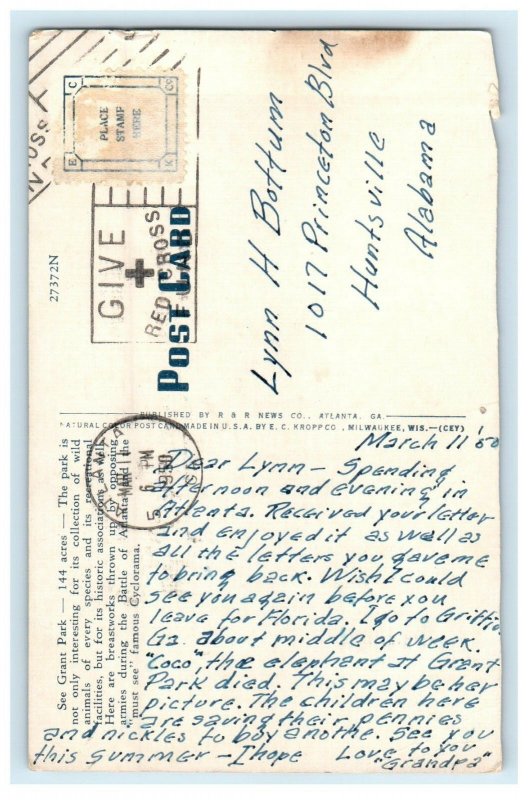 PLACE
STAMP
HERE
E C
K Co
GIVE
+
RED CROSS
POST CARD
27372N
Lynn H Bottum
1017 Princeton Blvd
Huntsville
Alabama
PUBLISHED BY R & R NEWS CO., ATLANTA, GA.
NATURAL COLOR POST CARD MADE IN U.S.A. BY E. C. KROPP CO., MILWAUKEE, WIS.—(CEY)
See Grant Park — 144 acres — The park is
not only interesting for its collection of wild
animals of every species and its recreational
facilities, but for its historic associations as well.
Here are breastworks thrown up by opposing
armies during the Battle of Atlanta and the
"must see" famous Cyclorama.
ATLANTA
MAR 11
6 PM
1950
March 11 '50
Dear Lynn - Spending
afternoon and evening in
Atlanta. Received your letter
and enjoyed it as well as
all the letters you gave me
to bring back. Wish I could
see you again before you
leave for Florida. I go to Griffin
Ga. about middle of week.
"Coco", the elephant at Grant
Park died. This may be her
picture. The children here
are saving their pennies
and nickles to buy anothe. See you
this summer - I hope Love to you
"Grandpa"